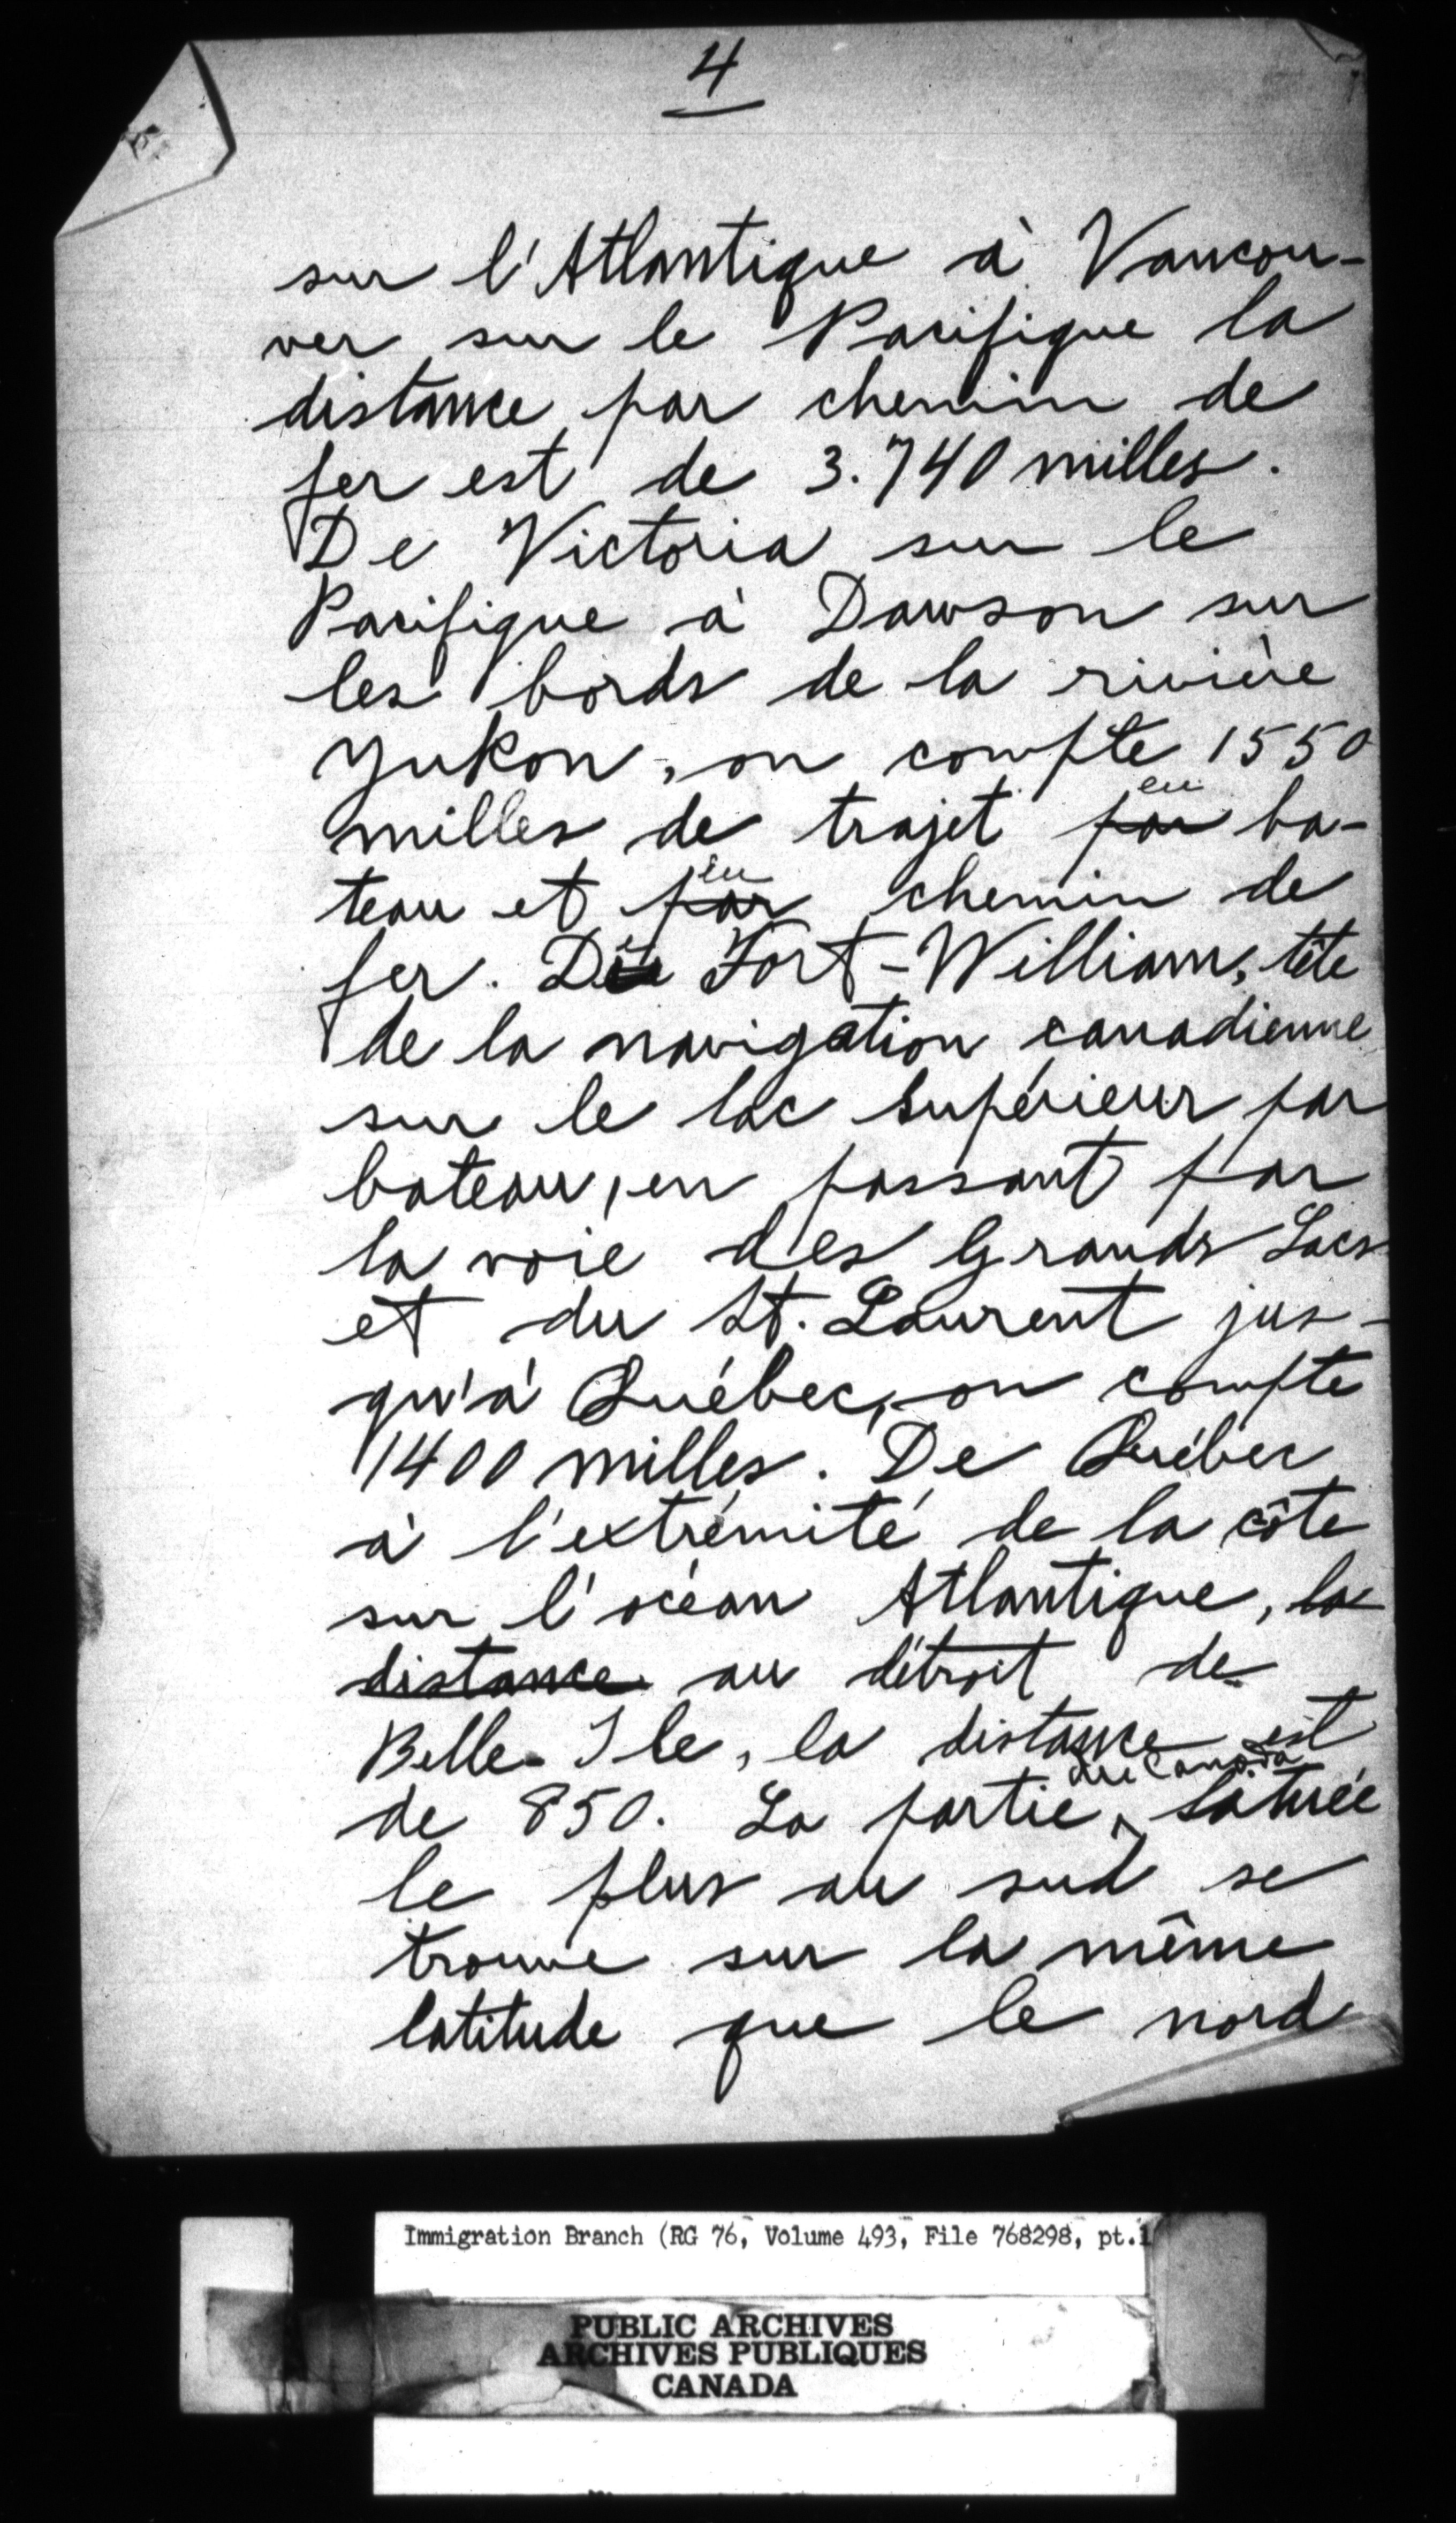 4
sur l'Atlantique à Vancou-
ver sur le Pacifique la
distance par chemin de
fer est de 3.740 milles.
De Victoria sur le
Pacifique à Dawson sur
les bords de la rivière
Yukon, on compte 1550
milles de trajet par en ba-
teau et par en chemin de
fer. De Fort-William, tête
de la navigation canadienne
sur le lac Supérieur par
bateau, en passant par
la voie des Grands Lacs
et du St. Laurent jus-
qu'à Québec, on compte
1400 milles. De Québec
à l'extrémité de la côte
sur l'océan Atlantique, la
distance au détroit de
Belle-Ile, la distance est
de 850. La partie du Canada située
le plus au sud se
trouve sur la même
latitude que le nord
Immigration Branch (RG 76, Volume 493, File 768298, pt.1
PUBLIC ARCHIVES
ARCHIVES PUBLIQUES
CANADA